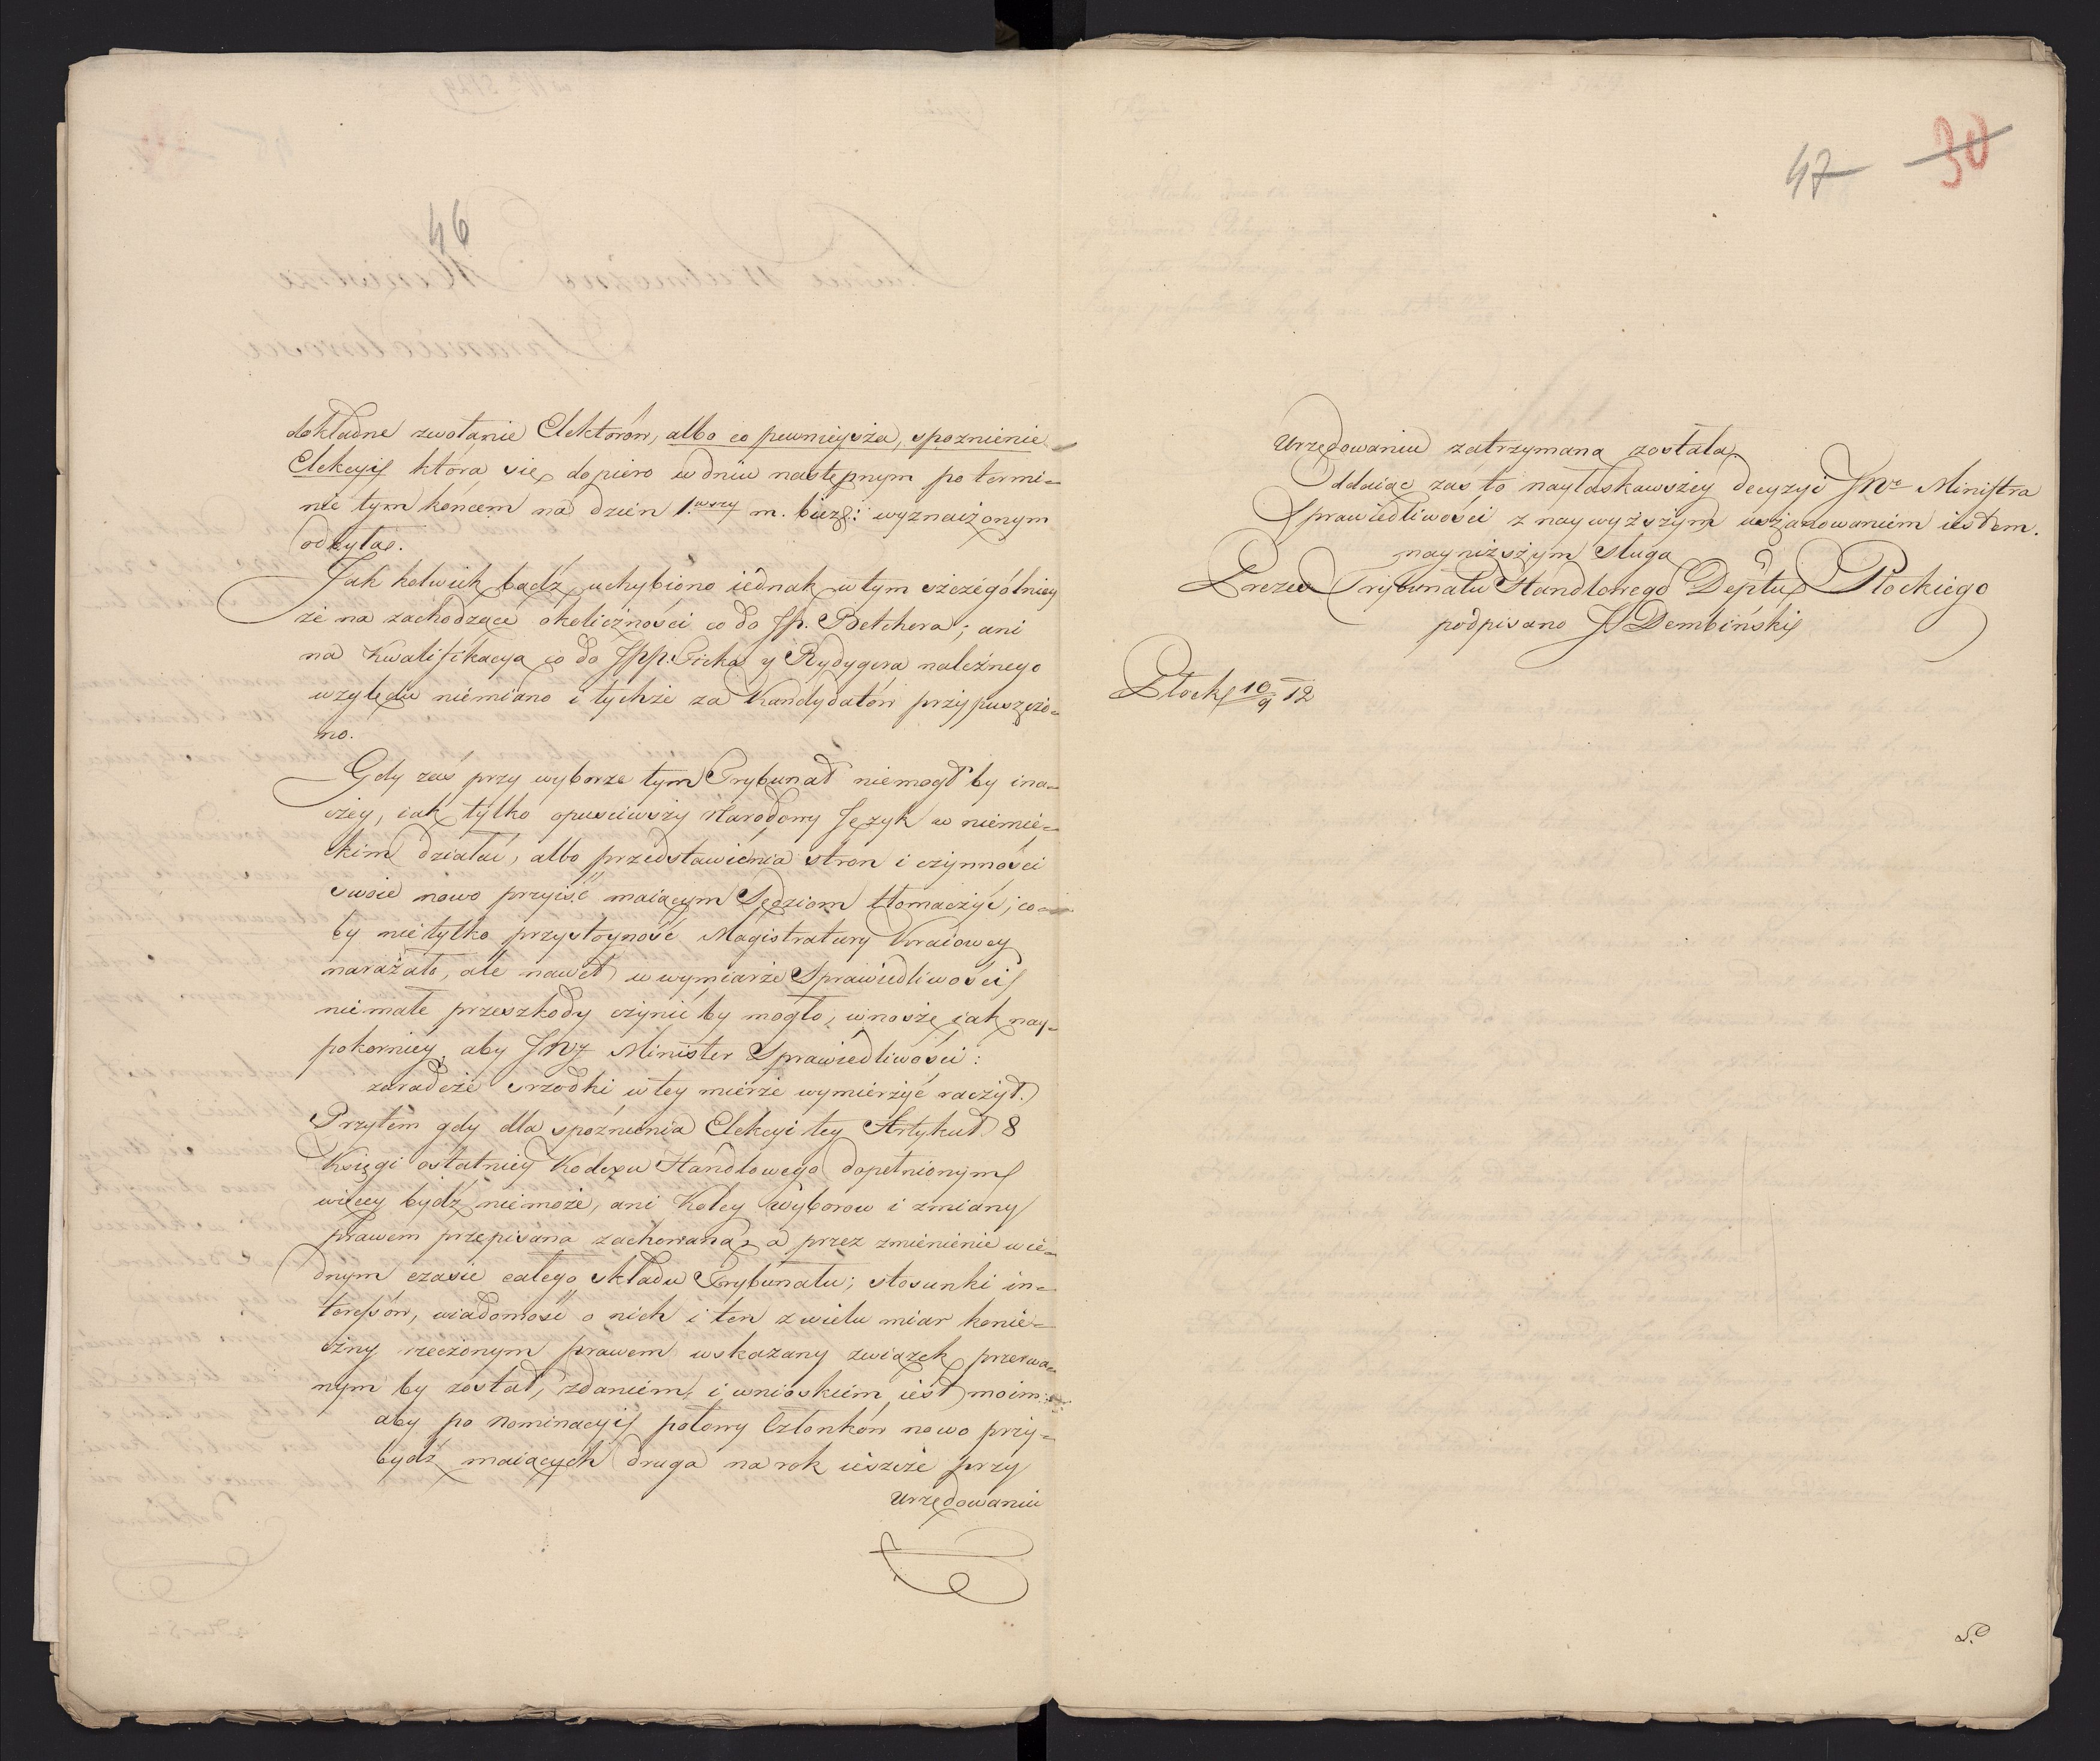 46
dokładne zwołanie Elektorów, albo co pewnieysza, spoznienie
Elekcyi która się dopiero w dniu następnym po termi=
nie tym końcem na dzień 1.wszy m. bieżł: wyznaczonym
odbyła.
Jak kolwiek bądź, uchybiono iednak w tym szczególniey
że na zachodzące okoliczności co do Jp. Betchera; ani
na Kwalifikacyą co do JPP. Ticka y Rydygera należnego
względu niemiano i tychże za Kandydatów przypuszczo=
no.
Gdy zaś przy wyborze tym Trybunał niemogł by ina=
czey, iak tylko opuściwszy Narodowy Język w niemie=
ckim działać, albo przedstawienia stron i czynności
swoie nowo przyiść maiącym Sędziom tłomaczyć; co=
by nietylko przystoyność Magistratury Kraiowey
narażało, ale nawet w wymiarze Sprawiedliwości
niemałe przeszkody czynić by mogło, wnoszę iak nay=
pokorniey, aby JWy Minister Sprawiedliwości:
zaradcze srzodki w tey mierze wymierzyć raczył.
Przytem gdy dla spóźnienia Elekcyi tey Artykuł 8
Księgi ostatniey Kodexu Handlowego dopełnionym
więcey bydź niemoże, ani Koley Wyborow i zmiany
prawem przepisana zachowana, a przez zmienienie w ie=
dnym czasie całego składu Trybunału; stosunki in=
teressów, wiadomość o nich i ten z wielu miar konie=
czny rzeczonym prawem wskazany związek przerwa=
nym by został, zdaniem i wnioskiem iest moim:
aby po nominacyi połowy Członków nowo przy=
bydź maiących druga na rok ieszcze przy
Urzędowaniu
47 30
Urzędowaniu zatrzymana została.
Oddaiąc zaś to nayłaskawszey decyzyi JWo Ministra
Sprawiedliwości z naywyższym uszanowaniem iestem.
nayniższym sługą
Prezes Trybunału Handlowego Deptu Płockiego
podpisano J Dembiński
Płock 10/9 12